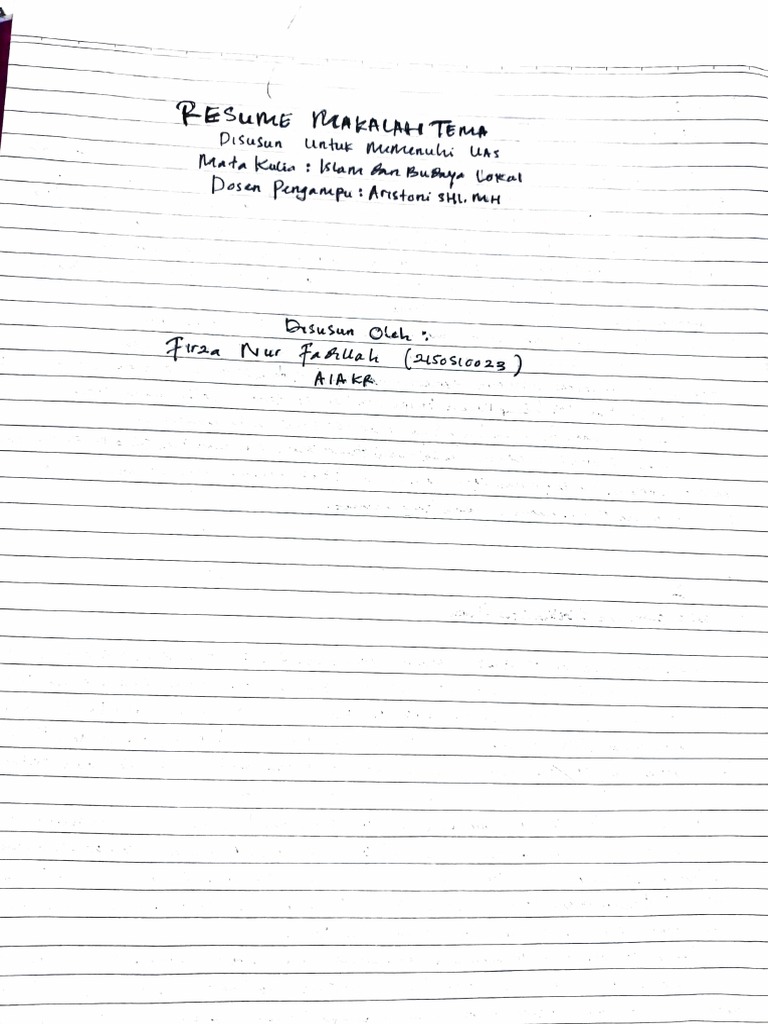 RESUME MAKALAH TEMA
Disusun Untuk Memenuhi UAS
Mata Kulia : Islam Dan Budaya Lokal
Dosen Pengampu : Aristoni SHI. MH
Disusun Oleh :
Firza Nur Fadillah (2150510023)
A1AKR